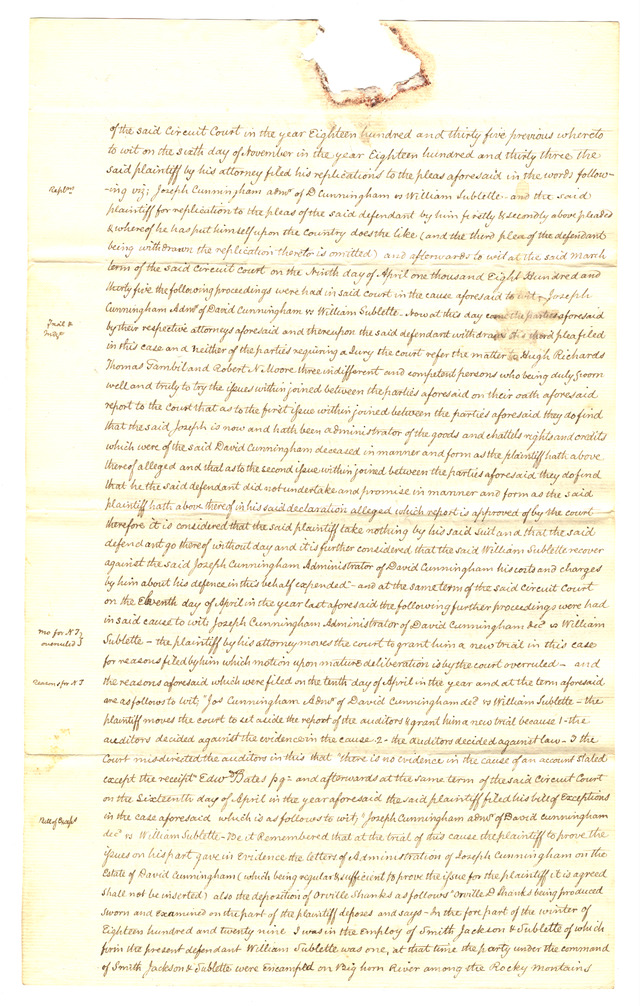 of the said Circuit Court in the year Eighteen hundred and thirty five previous whereto
to wit on the sixth day of November in the year Eighteen hundred and thirty three the
said plaintiff by his attorney filed his replications to the pleas aforesaid in the words follow-
Repl.
-ing viz; Joseph Cunningham admr of D Cunningham vs William Sublette - and the said
plaintiff for replication to the pleas of the said defendant by him firstly & secondly above pleaded
& whereof he has put himself upon the Country does the like (and the third plea of the defendant
being withdrawn the replication thereto is omitted) and afterwards to wit at the said March
term of the said Circuit Court on the Ninth day of April one thousand Eight Hundred and
thirty five the following proceedings were had in said court in the cause aforesaid to wit, Joseph
Cunningham Admr of David Cunningham vs William Sublette - Now at this day come the parties aforesaid
Trial &
Judgt
by their respective attorneys aforesaid and thereupon the said defendant withdraws his third plea filed
in this case and neither of the parties requiring a Jury the court refer the matter to Hugh Richards
Thomas Gambil and Robert N. Moore three indifferent and competent persons who being duly sworn
well and truly to try the issues within joined between the parties aforesaid on their oath aforesaid
report to the Court that as to the first issue within joined between the parties aforesaid they do find
that the said Joseph is now and hath been administrator of the goods and chattels rights and credits
which were of the said David Cunningham deceased in manner and form as the plaintiff hath above
thereof alleged and that as to the second issue within joined between the parties aforesaid they do find
that he the said defendant did not undertake and promise in manner and form as the said
plaintiff hath above thereof in his said declaration alleged which report is approved of by the court
therefore it is considered that the said plaintiff take nothing by his said suit and that the said
defendant go thereof without day and it is further considered that the said William Sublette recover
against the said Joseph Cunningham Administrator of David Cunningham his costs and charges
by him about his defence in this behalf expended - and at the same term of the said Circuit Court
on the Eleventh day of April in the year last aforesaid the following further proceedings were had
in said cause to wit; Joseph Cunningham Administrator of David Cunningham decd vs William
Mo for N T
overruled
Sublette - the plaintiff by his attorney moves the court to grant him a new trial in this case
for reasons filed by him which motion upon mature deliberation is by the court overruled - and
Reasons for N T
the reasons aforesaid which were filed on the tenth day of April in the year and at the term aforesaid
are as follows to wit; "Jos Cunningham Admr of David Cunningham decd vs William Sublette - the
plaintiff moves the court to set aside the report of the auditors & grant him a new trial because 1 - the
auditors decided against the evidence in the cause 2 - the auditors decided against law - 3 the
Court misdirected the auditors in this that "there is no evidence in the cause of an account stated
except the receipt" Edwd Bates pq - and afterwards at the same term of the said Circuit Court
on the Sixteenth day of April in the year aforesaid the said plaintiff filed his bill of Exceptions
Bill of Excepts
in the case aforesaid which is as follows to wit; "Joseph Cunningham admr of David Cunningham
decd vs William Sublette - Be it Remembered that at the trial of this cause the plaintiff to prove the
issues on his part gave in Evidence the letters of Administration of Joseph Cunningham on the
Estate of David Cunningham (which being regular & sufficient to prove the issue for the plaintiff it is agreed
shall not be inserted) also the deposition of Orville Shanks as follows "Orville D Shanks being produced
Sworn and Examined on the part of the plaintiff deposes and says - In the fore part of the winter of
Eighteen hundred and twenty nine I was in the Employ of Smith Jackson & Sublette of which
firm the present defendant William Sublette was one, at that time the party under the command
of Smith Jackson & Sublette were Encamped on Big horn River among the Rocky Mountains